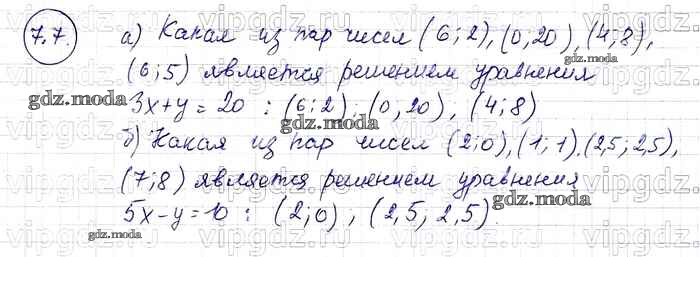 7.7. а) Какая из пар чисел (6; 2), (0, 20), (4; 8),
(6; 5) является решением уравнения
3x + y = 20 : (6; 2), (0, 20), (4; 8)
б) Какая из пар чисел (2; 0), (1; 1), (2,5; 2,5),
(7; 8) является решением уравнения
5x - y = 10 : (2; 0); (2,5; 2,5).
vipgdz.com
gdz.moda